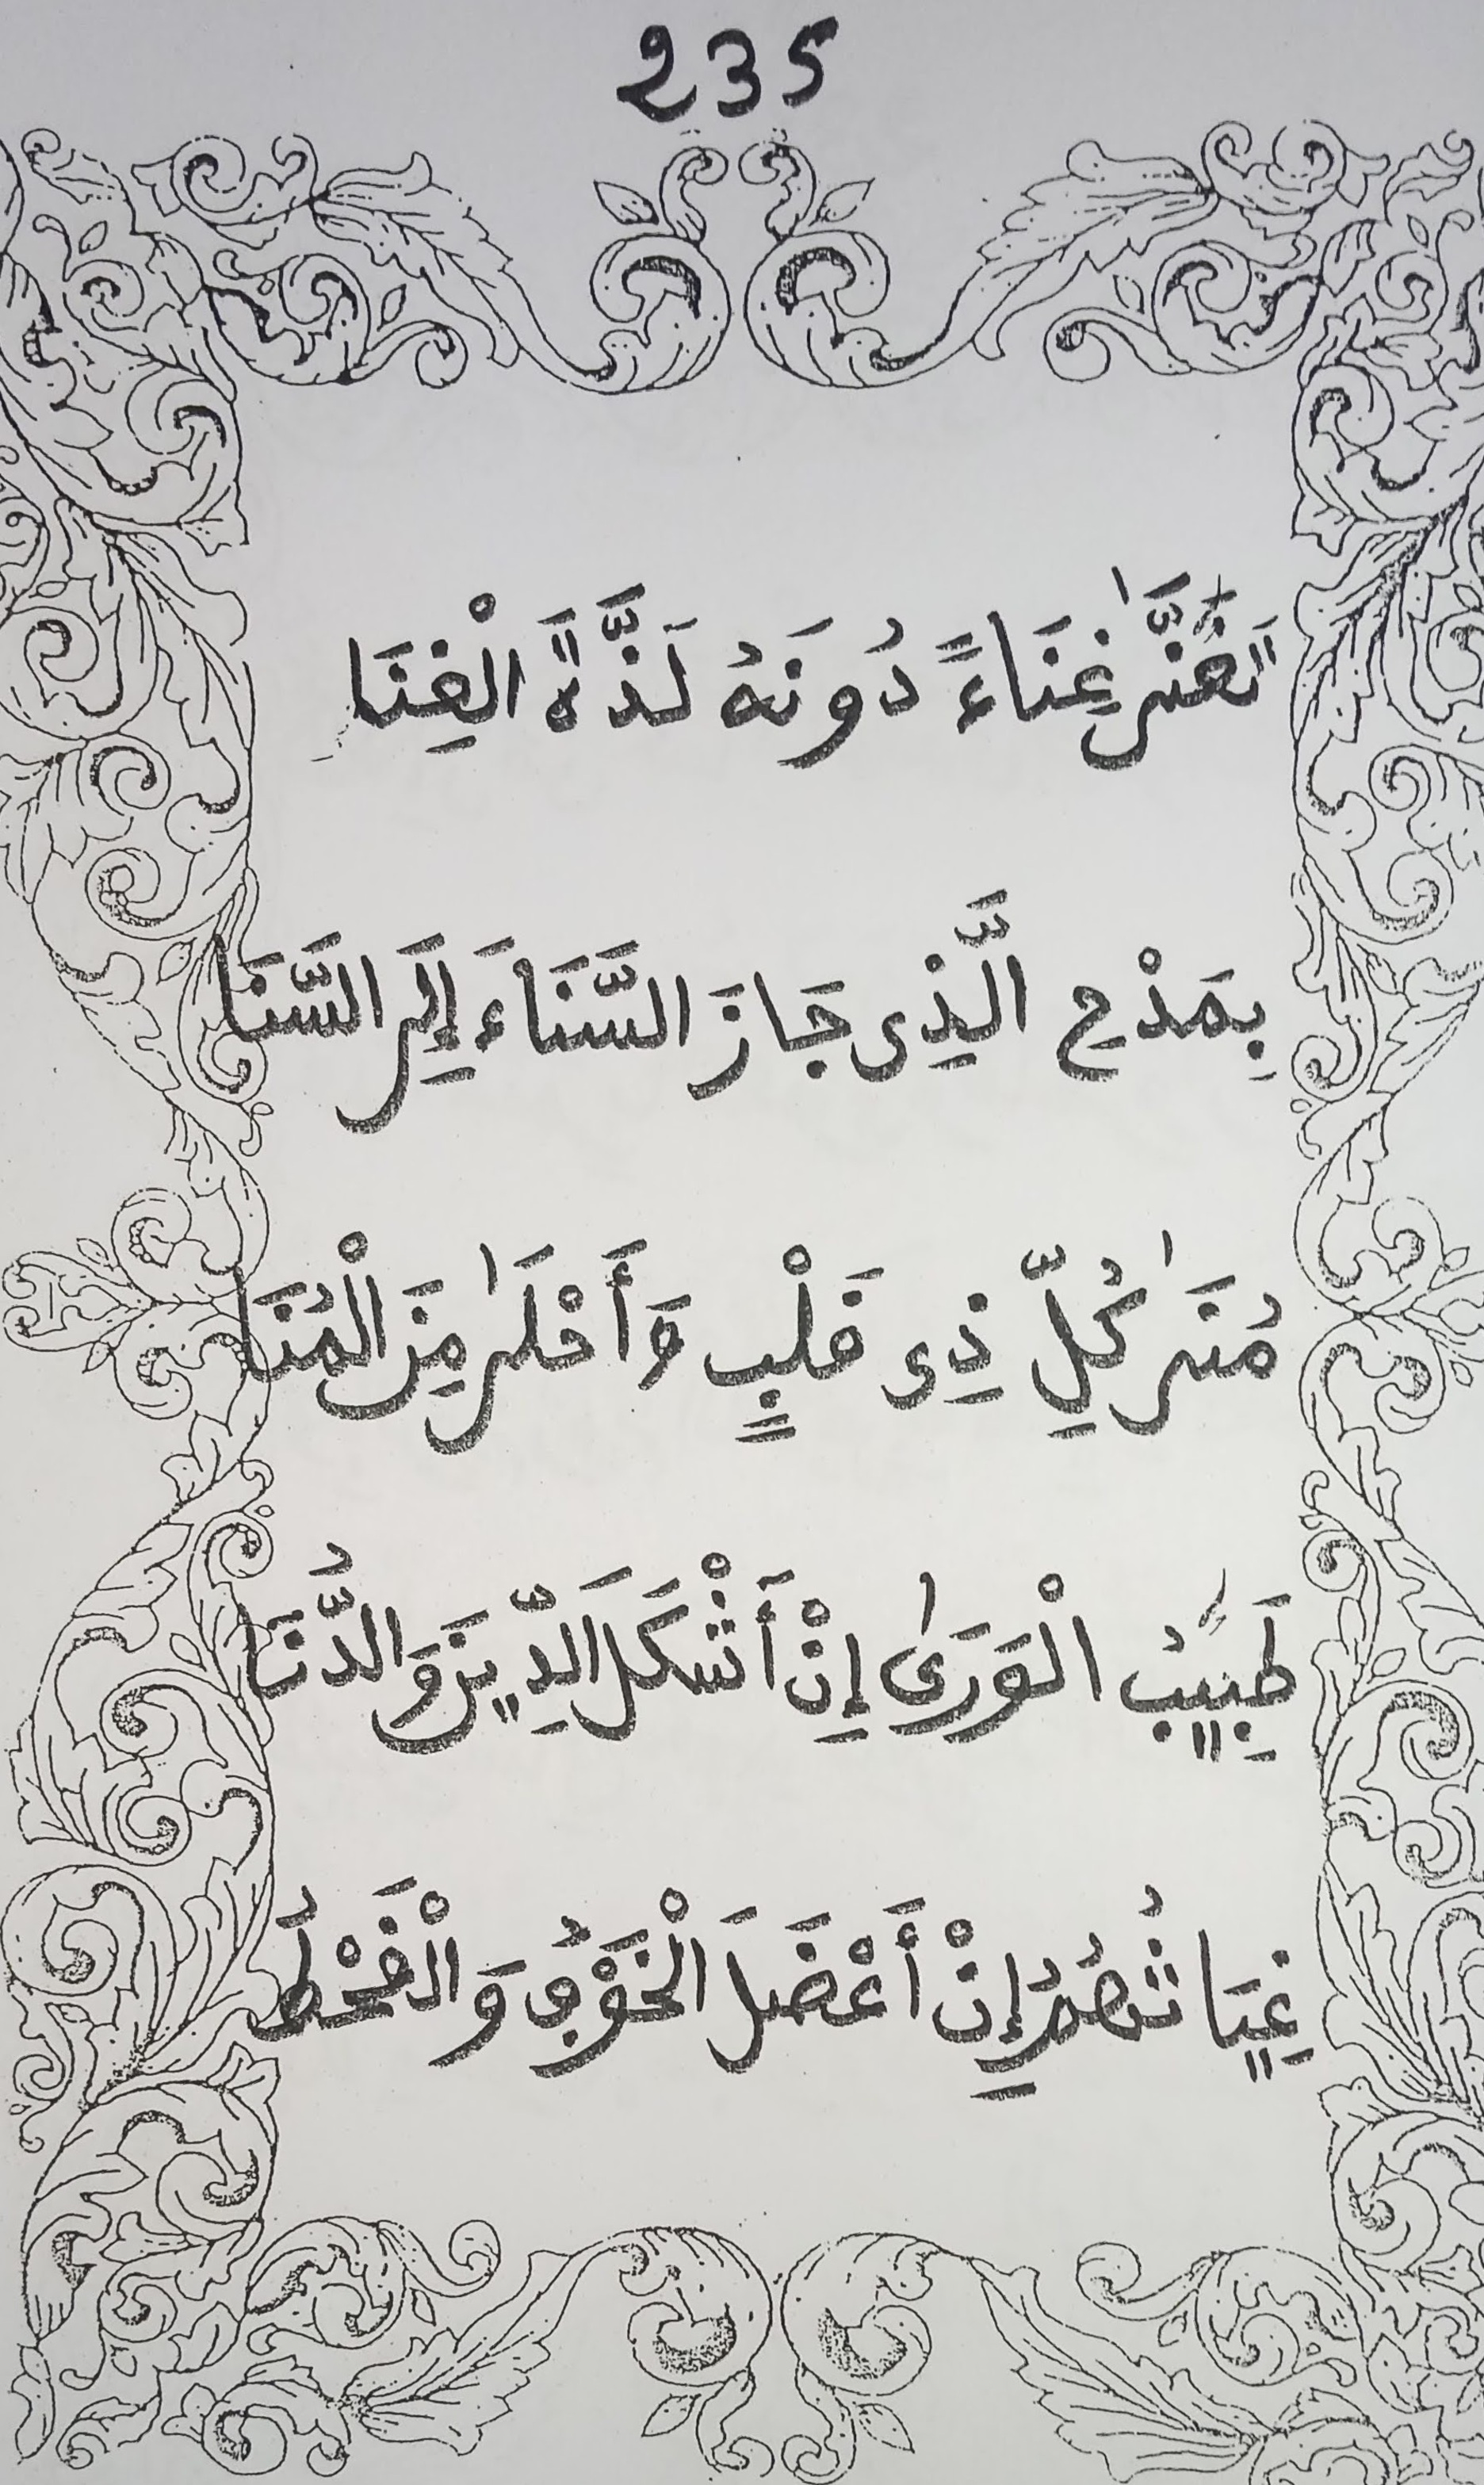 235
تَغَنَّى غِنَاءً دُونَهُ لَذَّةُ الْغِنَا
بِمَدْحِ الَّذِى جَازَ السَّنَاءَ إِلَى السَّنَا
مُنَىٰ كُلِّ ذِى قَلْبٍ وَأَحْلَىٰ مِنَ الْمُنَا
طَبِيبُ الْوَرَىٰ إِنْ أَشْكَلَ الدِّينَ وَالدُّنَا
غِيَاثُهُمُ إِنْ أَعْضَلَ الْخَوْفُ وَالْقَحْطُ